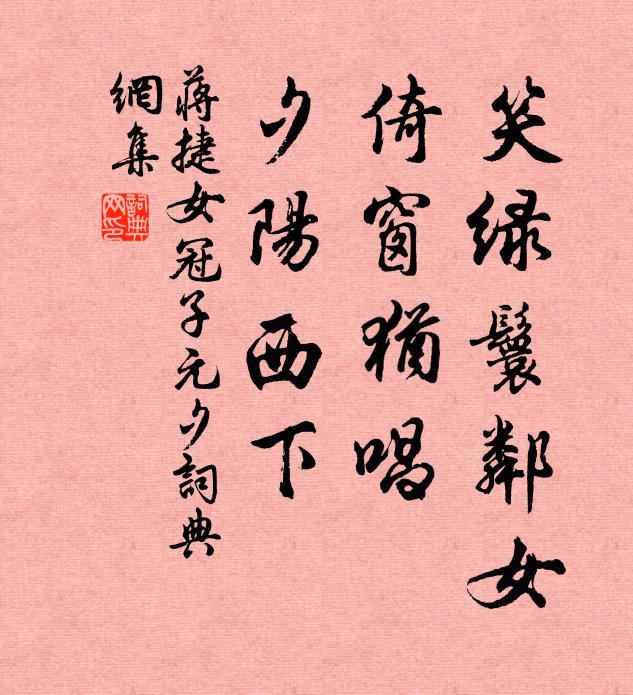 笑绿鬟鄰女
倚窗猶唱
夕陽西下
蔣捷女冠子元夕詞典
網集
詞典
网印